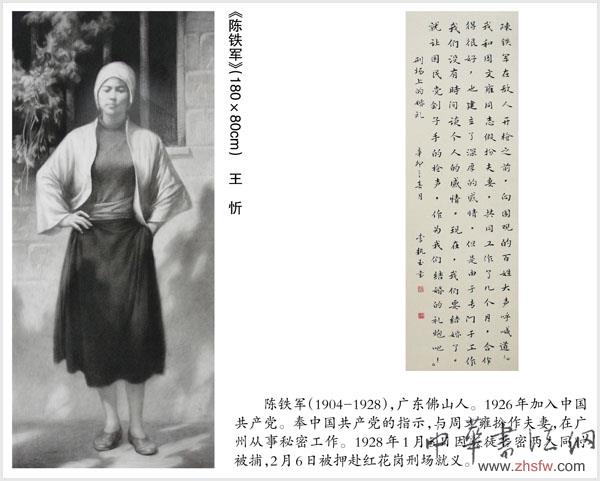 《陈铁军》(180×80cm) 王 忻
陳铁军在敌人开枪之前，向围观的百姓大声呼喊道：
我和周文雍同志假扮夫妻，共同工作了几个月，合作
得很好，也建立了深厚的感情。但是由于专门于工作
我们没有時间谈个人的感情。现在，我们要结婚了。
就让国民党刽子手的枪声，作为我们结婚的礼炮吧！
刑场上的婚礼 辛卯之春月
陈铁军(1904-1928),广东佛山人。1926年加入中国
共产党。奉中国共产党的指示,与周文雍扮作夫妻,在广
州从事秘密工作。1928年1月 日因叛徒告密两人同时
被捕,2月6日被押赴红花岗刑场就义。
中華書法網
www.zhsfw.com